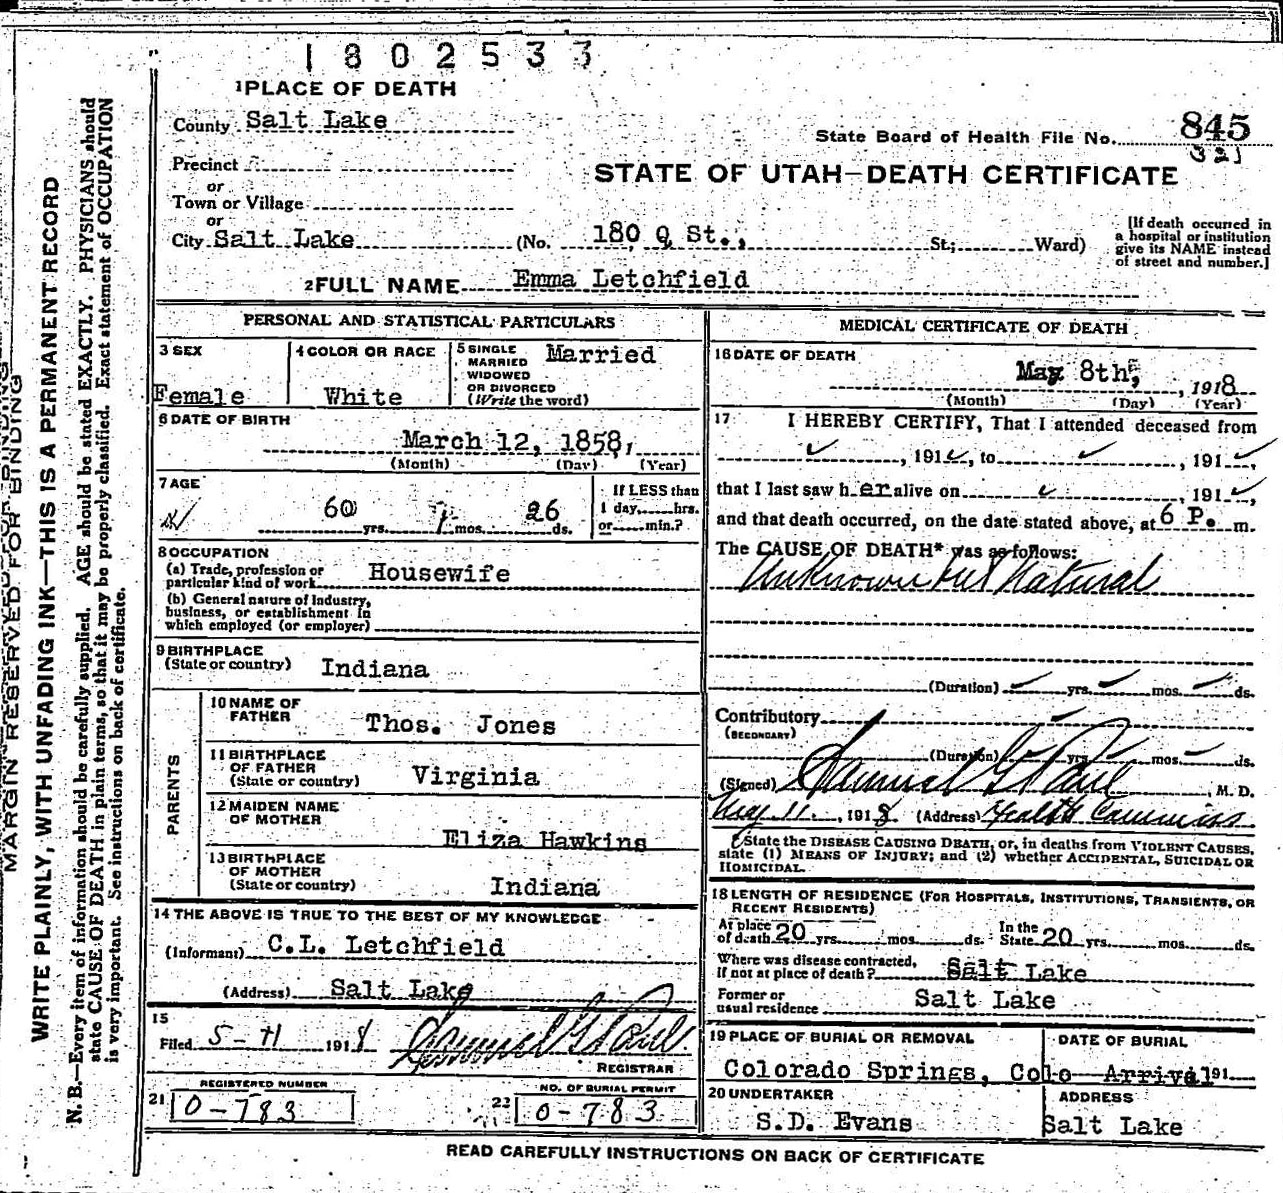 1 8 0 2 5 3 3
1 PLACE OF DEATH
County Salt Lake
State Board of Health File No. 845
321
Precinct
STATE OF UTAH—DEATH CERTIFICATE
or
Town or Village
or
City Salt Lake (No. 180 Q St., St; Ward)
[If death occurred in a hospital or institution give its NAME instead of street and number.]
2 FULL NAME Emma Letchfield
PERSONAL AND STATISTICAL PARTICULARS
3 SEX
Female
4 COLOR OR RACE
White
5 SINGLE
MARRIED
WIDOWED
OR DIVORCED
(Write the word)
Married
6 DATE OF BIRTH
March 12, 1858,
(Month) (Day) (Year)
7 AGE
60 yrs. 1 mos. 26 ds.
If LESS than
1 day, hrs.
or min.?
8 OCCUPATION
(a) Trade, profession or
particular kind of work Housewife
(b) General nature of Industry,
business, or establishment in
which employed (or employer)
9 BIRTHPLACE
(State or country) Indiana
PARENTS
10 NAME OF
FATHER Thos. Jones
11 BIRTHPLACE
OF FATHER
(State or country) Virginia
12 MAIDEN NAME
OF MOTHER Eliza Hawkins
13 BIRTHPLACE
OF MOTHER
(State or country) Indiana
14 THE ABOVE IS TRUE TO THE BEST OF MY KNOWLEDGE
(Informant) C.L. Letchfield
(Address) Salt Lake
15
Filed 5-11 1918 Samuel G Paul
REGISTRAR
21 REGISTERED NUMBER
0-783
22 NO. OF BURIAL PERMIT
0-783
MEDICAL CERTIFICATE OF DEATH
16 DATE OF DEATH
May 8th, , 1918
(Month) (Day) (Year)
17 I HEREBY CERTIFY, That I attended deceased from
, 191 , to , 191 ,
that I last saw her alive on , 191 ,
and that death occurred, on the date stated above, at 6 P. m.
The CAUSE OF DEATH* was as follows:
Unknown but Natural
(Duration) yrs. mos. ds.
Contributory
(SECONDARY)
(Duration) yrs. mos. ds.
(Signed) Samuel G Paul , M. D.
May 11 , 1918. (Address) Health Commiss
State the DISEASE CAUSING DEATH, or, in deaths from VIOLENT CAUSES,
state (1) MEANS OF INJURY; and (2) whether ACCIDENTAL, SUICIDAL OR
HOMICIDAL.
18 LENGTH OF RESIDENCE (FOR HOSPITALS, INSTITUTIONS, TRANSIENTS, OR
RECENT RESIDENTS)
At place
of death 20 yrs. mos. ds.
In the
State 20 yrs. mos. ds.
Where was disease contracted,
if not at place of death? Salt Lake
Former or
usual residence Salt Lake
19 PLACE OF BURIAL OR REMOVAL
DATE OF BURIAL
Colorado Springs, Colo Arrival 191
20 UNDERTAKER
S.D. Evans
ADDRESS
Salt Lake
READ CAREFULLY INSTRUCTIONS ON BACK OF CERTIFICATE
MARGIN RESERVED FOR BINDING
WRITE PLAINLY, WITH UNFADING INK—THIS IS A PERMANENT RECORD
N. B.—Every item of information should be carefully supplied. AGE should be stated EXACTLY. PHYSICIANS should
state CAUSE OF DEATH in plain terms, so that it may be properly classified. Exact statement of OCCUPATION
is very important. See instructions on back of certificate.